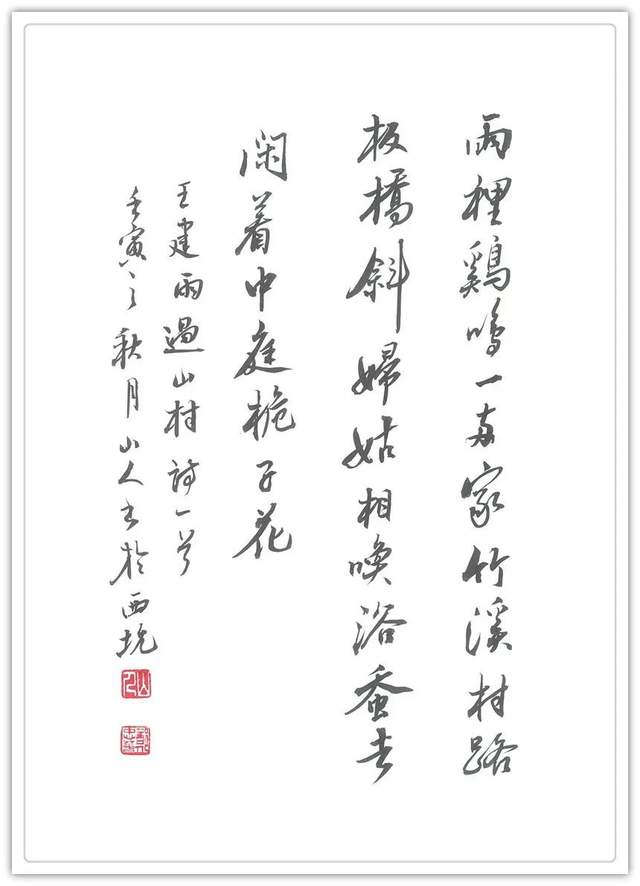 雨裡鷄鳴一兩家竹溪村路
板橋斜婦姑相喚浴蚕去
閑着中庭梔子花
王建雨過山村詩一首
壬寅之秋月山人書於西坑